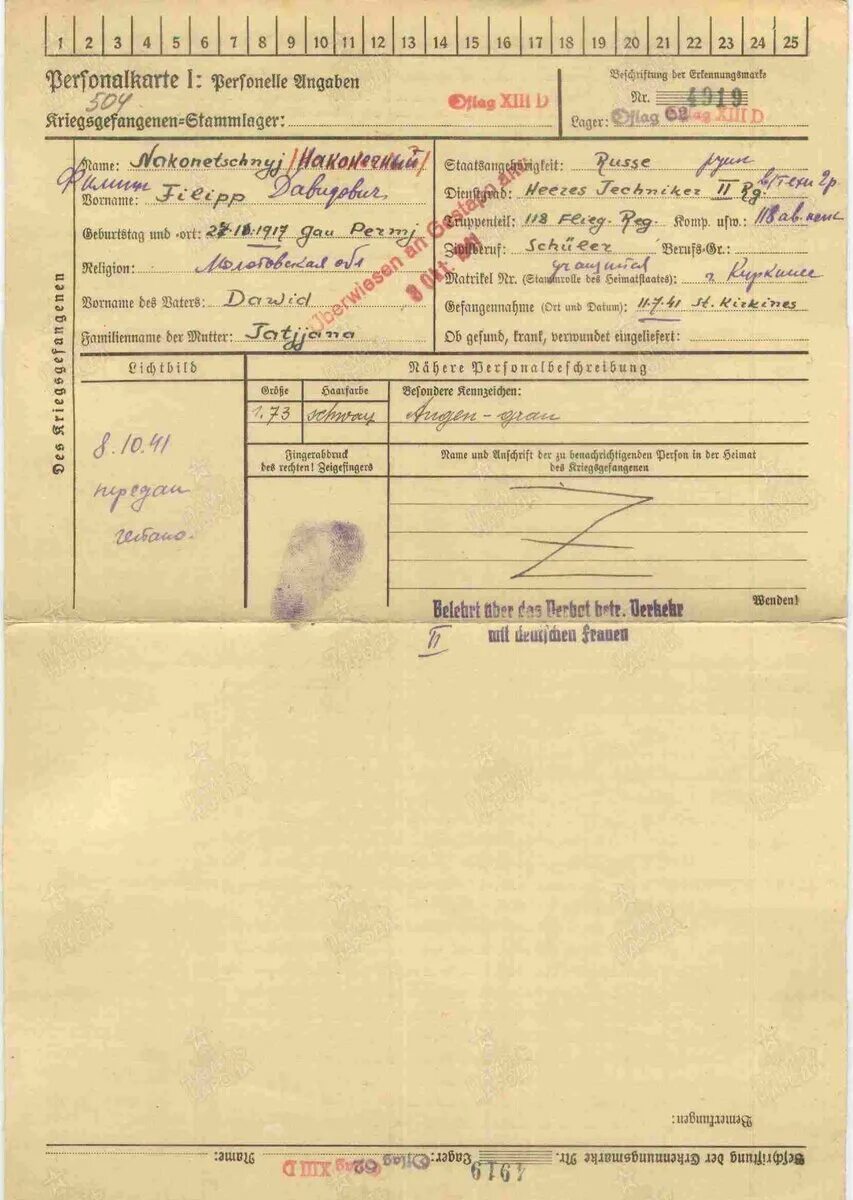 1 2 3 4 5 6 7 8 9 10 11 12 13 14 15 16 17 18 19 20 21 22 23 24 25
Personalkarte I: Personelle Angaben
504
Kriegsgefangenen=Stammlager:
Oflag XIII D
Beschriftung der Erkennungsmarke
Nr. 4919
Lager: Oflag 62 Oflag XIII D
Des Kriegsgefangenen
Name: Nakonetschnyj /Наконечный/
Филипп
Vorname: Filipp Давидович
Geburtstag und =ort: 1917 gau Permj
Religion: Молотовская обл
Vorname des Vaters: Dawid
Familienname der Mutter: Tatjjana
Überwiesen an Gestapo am
Staatsangehörigkeit: Russe
Dienstgrad: Heeres Techniker II Rg. в/техн 2 р.
Truppenteil: 118 Flieg. Reg. Komp. usw.: 118 ав.
Zivilberuf: Schüler Berufs-Gr.:
Matrikel Nr. (Stammrolle des Heimatstaates): г Киркинес
Gefangennahme (Ort und Datum): 11.7.41 St. Kirkines
Ob gesund, krank, verwundet eingeliefert:
Lichtbild
8.10.41
передан
гестапо.
Nähere Personalbeschreibung
Größe Haarfarbe Besondere Kennzeichen:
1.73 schwarz Augen - grau
Fingerabdruck
des rechten! Zeigefingers
Name und Anschrift der zu benachrichtigenden Person in der Heimat
des Kriegsgefangenen
Wenden!
Belehrt über das Verbot betr. Verkehr
mit deutschen Frauen
II
Bemerkungen:
Beschriftung der Erkennungsmarke Nr. 4919 Lager: Oflag 62 Oflag XIII D Name: